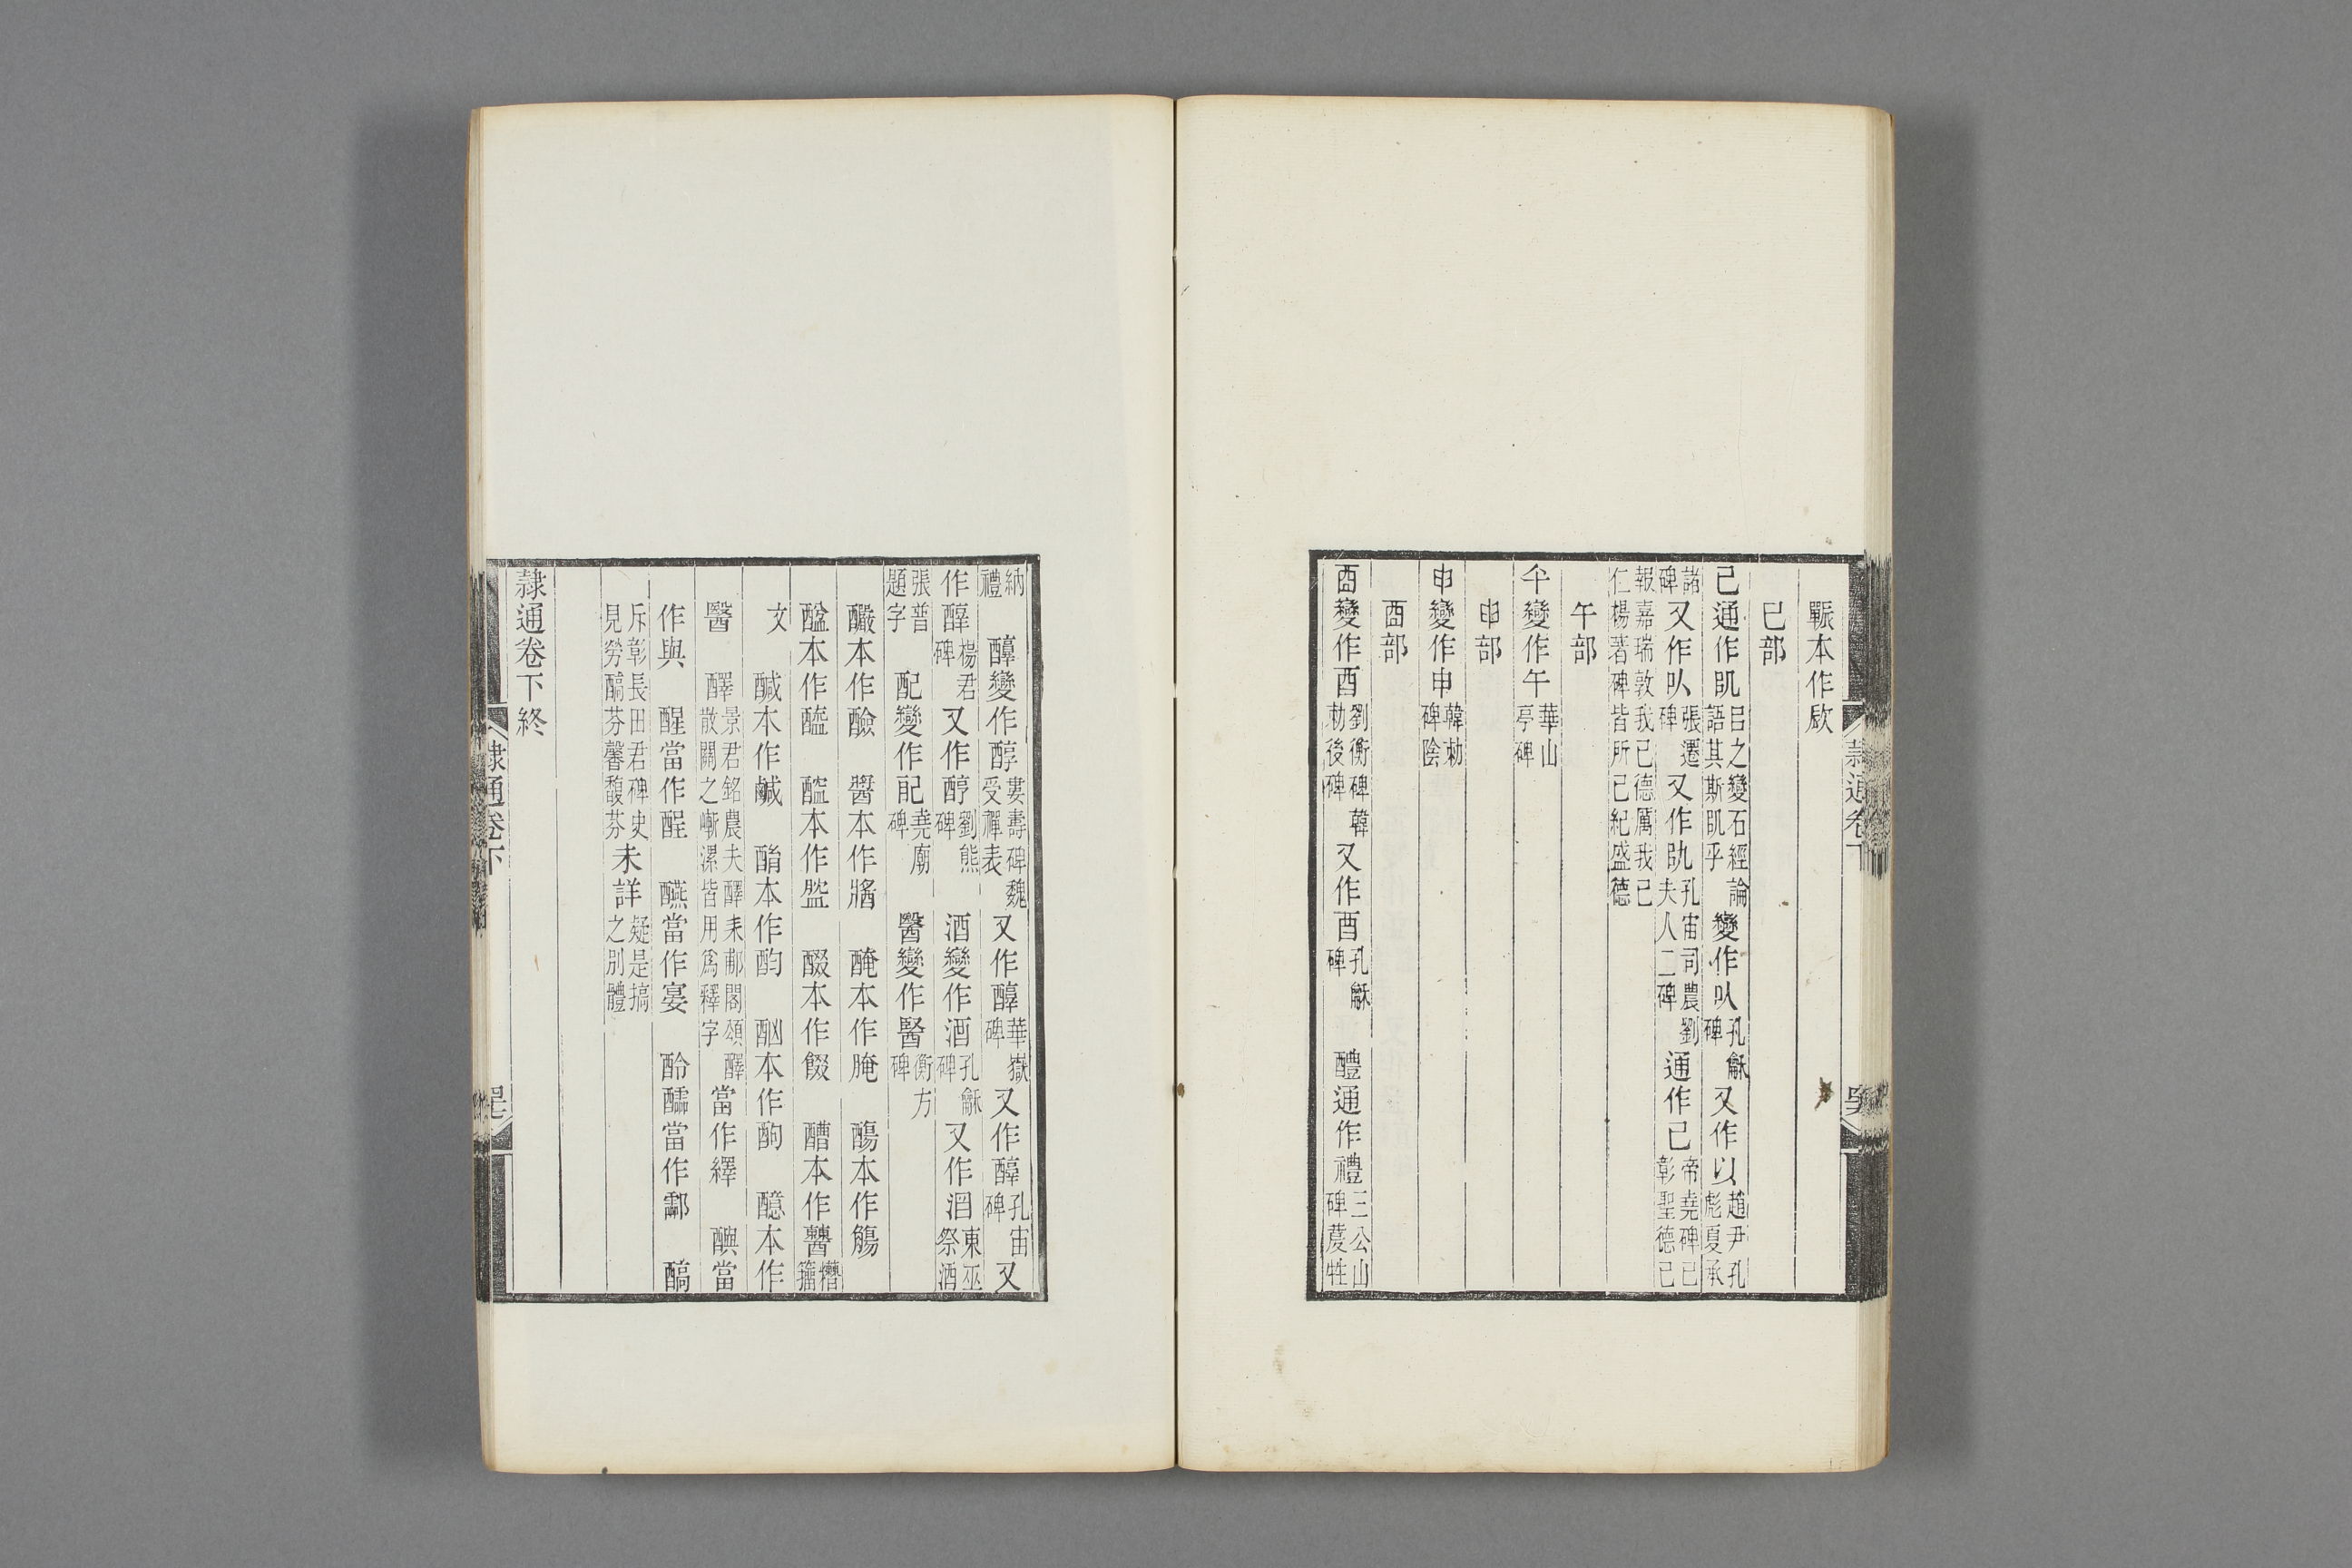 䡅本作欣
巳部
㠯通作㠯㠯之變石經論語其斯㠯乎變作㕥孔龢碑又作以趙尹孔彪夏承
諸碑又作㕥張遷碑又作㠯孔宙司農劉夫人二碑通作已帝堯碑已彰聖德已
報嘉瑞敦我已德厲我已仁楊著碑皆所已紀盛德
午部
午變作午華山亭碑
申部
申變作申韓勑碑陰
酉部
酉變作酉劉衡碑韓勑後碑又作酉孔龢碑 醴通作禮三公山碑蔆牲
納禮 醇變作醇婁壽碑魏受禪表又作醇華嶽碑又作醇孔宙碑又
作醇楊君碑又作酻劉熊碑 酒變作酒孔龢碑又作酒東巫祭酒
張普題字 配變作配堯廟碑 醫變作醫衡方碑
釅本作醶 醬本作牆 醃本作腌 醻本作觴
醯本作醯 醓本作㿼 醊本作餟 醩本作糟籒
酸本作鹹 酳本作酌 酗本作酌 醷本作
文醫 醳景君銘農夫醳耒郙閣頌醳散關之嶃漯皆用爲釋字當作繹 醧當
作與 醒當作酲 醼當作宴 酃當作酃 醕
斥彰長田君碑史見勞醕芬馨馥芬未詳疑是搞之別體
隷通卷下終
隷通卷下